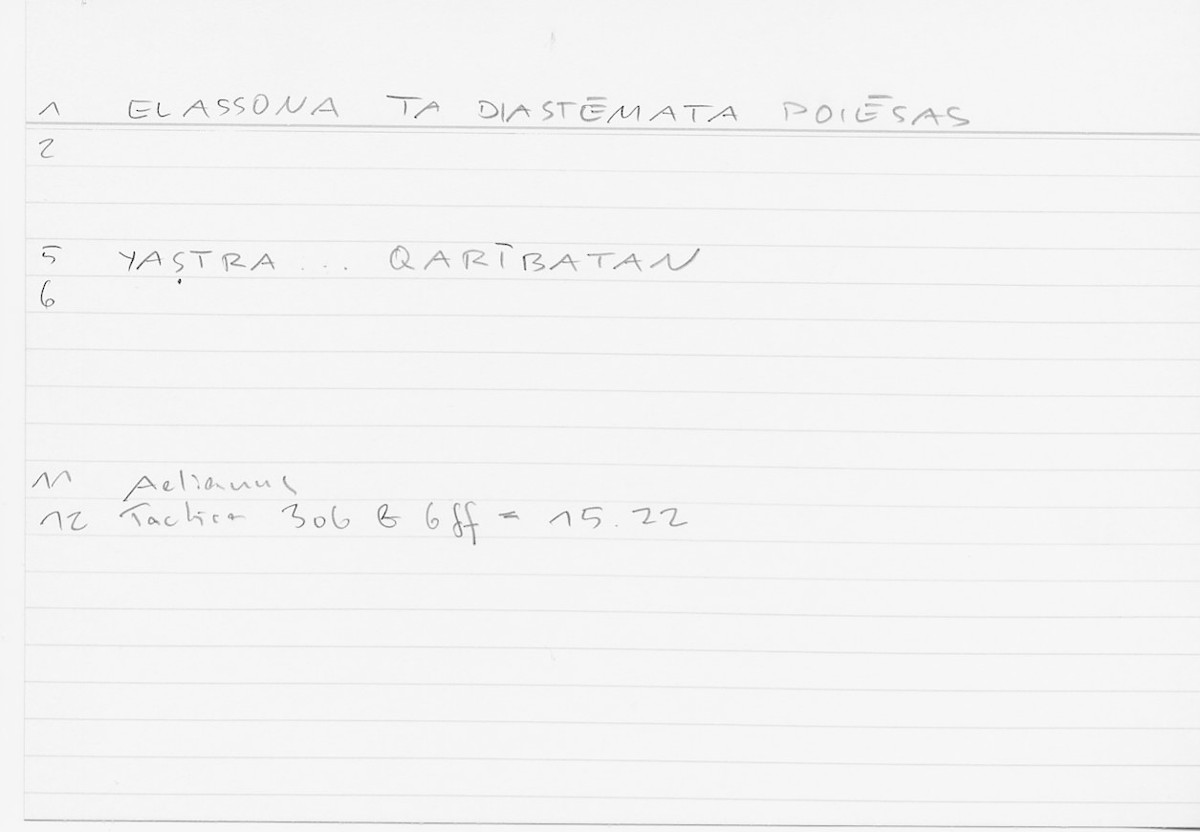 1 ELASSONA TA DIASTĒMATA POIĒSAS
2
5 YAṢTRA ... QARĪBATAN
6
11 Aelianus
12 Tactica 306 B 6ff = 15.22